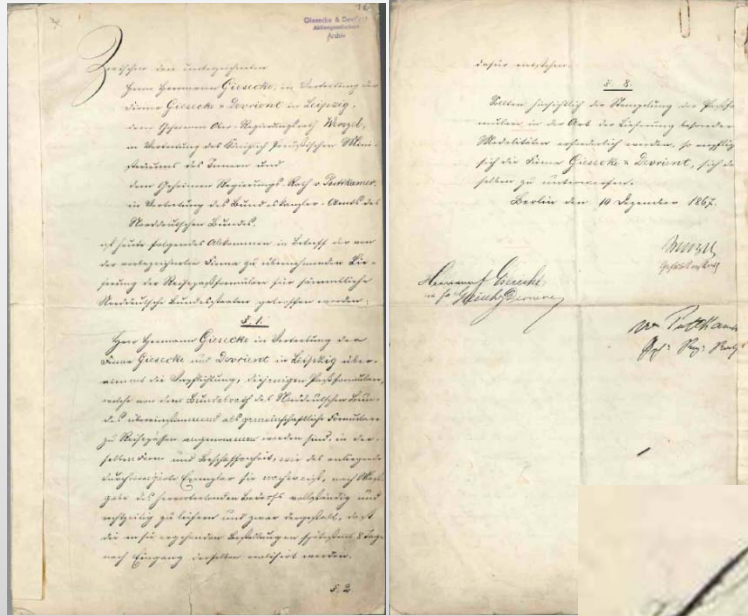 Giesecke & Devrient
Aktiengesellschaft
Archiv
Zwischen den unterzeichneten
Herrn Hermann Giesecke, in Vertretung der
Firma Giesecke & Devrient in Leipzig,
dem Geheimen Ober-Regierungsrath Wenzel,
in Vertretung des Königlich Preußischen Mini-
steriums des Innern und
dem Geheimen Regierungs-Rath v Puttkamer,
in Vertretung des Bundeskanzler-Amts des
Norddeutschen Bundes,
ist heute folgendes Abkommen in Betreff der von
der vorbezeichneten Firma zu übernehmenden Lie-
ferung der Reisepaßformulare für sämmtliche
Norddeutsche Bundesstaaten getroffen worden:
§ 1.
Herr Hermann Giesecke in Vertretung der
Firma Giesecke und Devrient in Leipzig über-
nimmt die Verpflichtung, diejenigen Paßformulare,
welche von dem Bundesrath des Norddeutschen Bun-
des übereinstimmend als gemeinschaftliche Formulare
zu Reisepässen angenommen worden sind, in der-
selben Form und Beschaffenheit, wie das anliegende
Exemplar sie nachweist, nach Maß-
gabe des hervortretenden Bedarfs vollständig und
rechtzeitig zu liefern und zwar dergestalt, daß
die an sie ergehenden Bestellungen spätestens 8 Tage
nach Eingang derselben realisirt werden.
§. 2
dafür entstehen.
§. 8.
Sollten hinsichtlich der Stempelung der Paßfor-
mulare in der Art der Lieferung besondere
Modalitäten erforderlich werden, so verpflich
sich die Firma Giesecke & Devrient, sich de
selben zu unterwerfen.
Berlin den 10 Dezember 1867.
Wenzel
Hermann Giesecke
Giesecke & Devrient
von Puttkamer
Geh: Reg: Rath